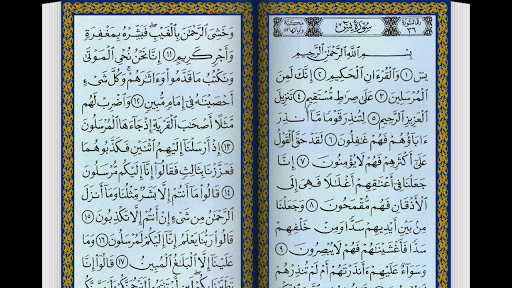 سُورَةُ يسٓ
٣٦
بِسْمِ ٱللَّهِ ٱلرَّحْمَٰنِ ٱلرَّحِيمِ
يسٓ ۝١ وَٱلْقُرْءَانِ ٱلْحَكِيمِ ۝٢ إِنَّكَ لَمِنَ
ٱلْمُرْسَلِينَ ۝٣ عَلَىٰ صِرَٰطٍ مُّسْتَقِيمٍ ۝٤ تَنزِيلَ
ٱلْعَزِيزِ ٱلرَّحِيمِ ۝٥ لِتُنذِرَ قَوْمًا مَّآ أُنذِرَ
ءَابَآؤُهُمْ فَهُمْ غَٰفِلُونَ ۝٦ لَقَدْ حَقَّ ٱلْقَوْلُ
عَلَىٰٓ أَكْثَرِهِمْ فَهُمْ لَا يُؤْمِنُونَ ۝٧ إِنَّا
جَعَلْنَا فِىٓ أَعْنَٰقِهِمْ أَغْلَٰلًا فَهِىَ إِلَى
ٱلْأَذْقَانِ فَهُم مُّقْمَحُونَ ۝٨ وَجَعَلْنَا
مِنۢ بَيْنِ أَيْدِيهِمْ سَدًّا وَمِنْ خَلْفِهِمْ
سَدًّا فَأَغْشَيْنَٰهُمْ فَهُمْ لَا يُبْصِرُونَ ۝٩
وَسَوَآءٌ عَلَيْهِمْ ءَأَنذَرْتَهُمْ أَمْ لَمْ تُنذِرْهُمْ
وَخَشِىَ ٱلرَّحْمَٰنَ بِٱلْغَيْبِ ۖ فَبَشِّرْهُ بِمَغْفِرَةٍ
وَأَجْرٍ كَرِيمٍ ۝١١ إِنَّا نَحْنُ نُحْىِ ٱلْمَوْتَىٰ
وَنَكْتُبُ مَا قَدَّمُوا۟ وَءَاثَٰرَهُمْ ۚ وَكُلَّ شَىْءٍ
أَحْصَيْنَٰهُ فِىٓ إِمَامٍ مُّبِينٍ ۝١٢ وَٱضْرِبْ لَهُم
مَّثَلًا أَصْحَٰبَ ٱلْقَرْيَةِ إِذْ جَآءَهَا ٱلْمُرْسَلُونَ
۝١٣ إِذْ أَرْسَلْنَآ إِلَيْهِمُ ٱثْنَيْنِ فَكَذَّبُوهُمَا
فَعَزَّزْنَا بِثَالِثٍ فَقَالُوٓا۟ إِنَّآ إِلَيْكُم مُّرْسَلُونَ
۝١٤ قَالُوا۟ مَآ أَنتُمْ إِلَّا بَشَرٌ مِّثْلُنَا وَمَآ أَنزَلَ
ٱلرَّحْمَٰنُ مِن شَىْءٍ إِنْ أَنتُمْ إِلَّا تَكْذِبُونَ ۝١٥
قَالُوا۟ رَبُّنَا يَعْلَمُ إِنَّآ إِلَيْكُمْ لَمُرْسَلُونَ ۝١٦ وَمَا
عَلَيْنَآ إِلَّا ٱلْبَلَٰغُ ٱلْمُبِينُ ۝١٧ قَالُوٓا۟ إِنَّا